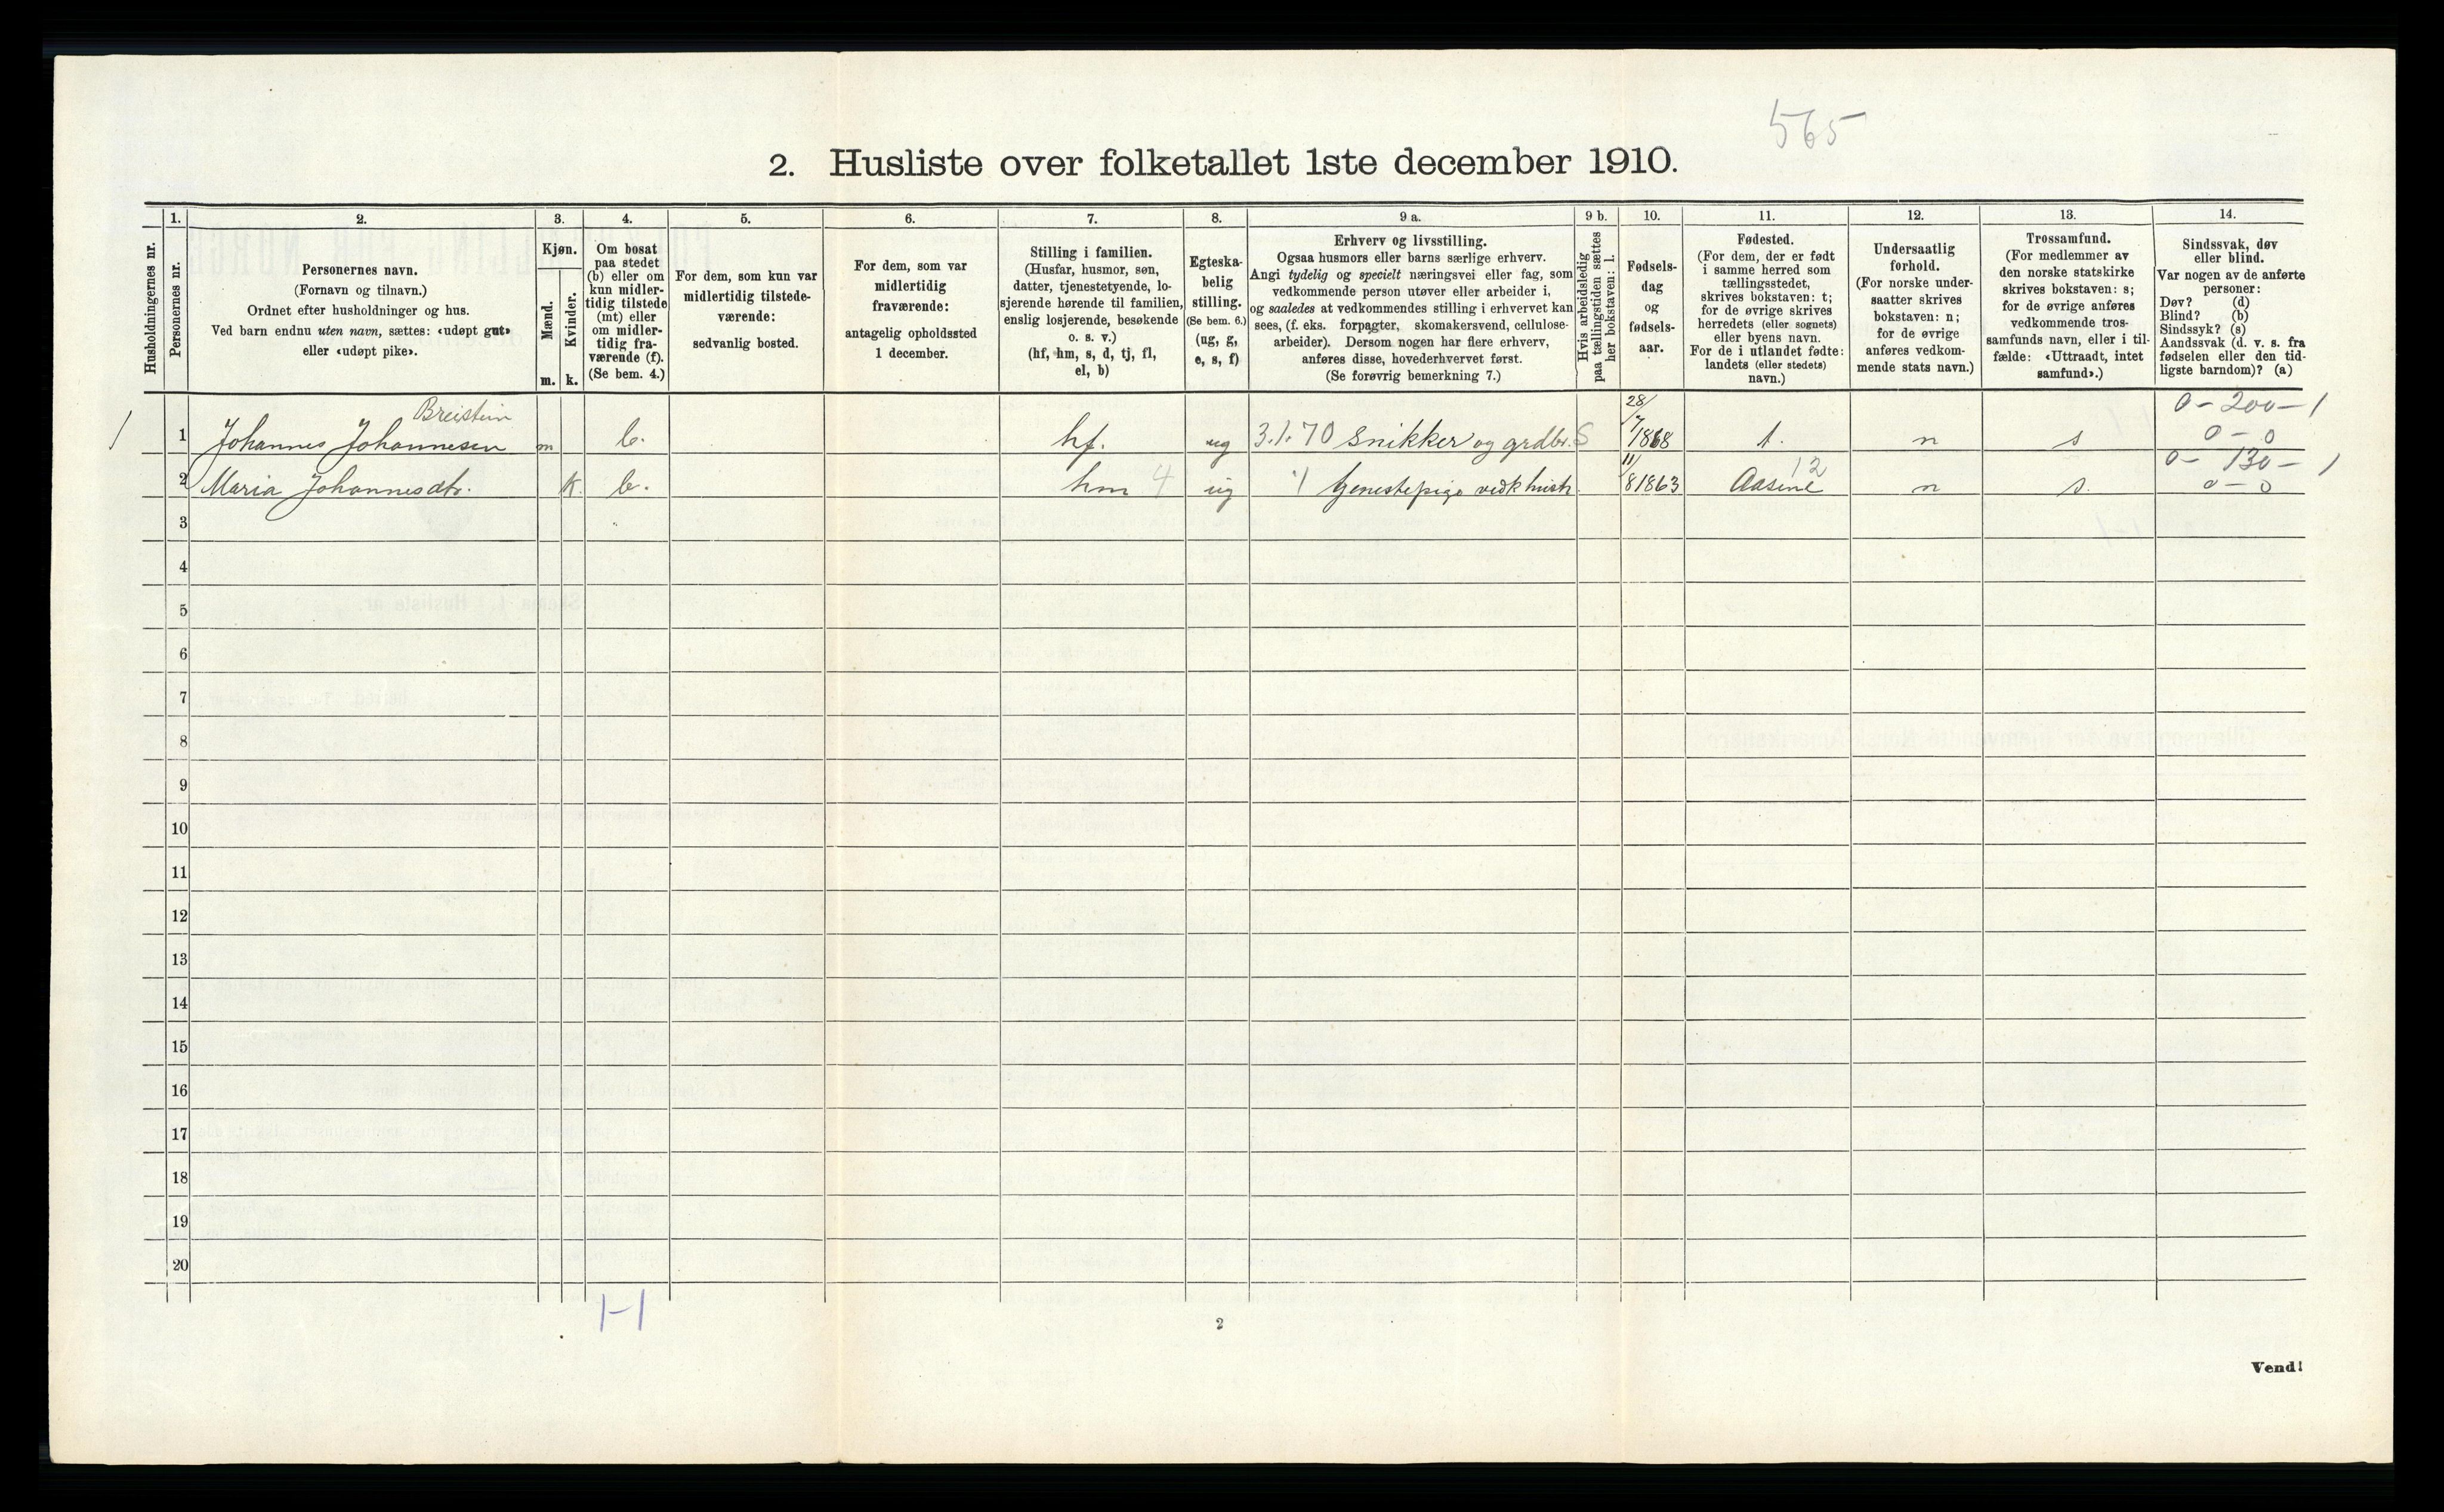 565
2. Husliste over folketallet 1ste december 1910.
Husholdningernes nr.
1.
Personernes nr.
2.
Personernes navn.
(Fornavn og tilnavn.)
Ordnet efter husholdninger og hus.
Ved barn endnu uten navn, sættes: «udøpt gut»
eller «udøpt pike».
3.
Kjøn.
Mænd.
Kvinder.
m. k.
4.
Om bosat
paa stedet
(b) eller om
kun midler-
tidig tilstede
(mt) eller
om midler-
tidig fra-
værende (f).
(Se bem. 4.)
5.
For dem, som kun var
midlertidig tilstede-
værende:
sedvanlig bosted.
6.
For dem, som var
midlertidig
fraværende:
antagelig opholdssted
1 december.
7.
Stilling i familien.
(Husfar, husmor, søn,
datter, tjenestetyende, lo-
sjerende hørende til familien,
enslig losjerende, besøkende
o. s. v.)
(hf, hm, s, d, tj, fl,
el, b)
8.
Egteska-
belig
stilling.
(Se bem. 6.)
(ug, g,
e, s, f)
9 a.
Erhverv og livsstilling.
Ogsaa husmors eller barns særlige erhverv.
Angi tydelig og specielt næringsvei eller fag, som
vedkommende person utøver eller arbeider i,
og saaledes at vedkommendes stilling i erhvervet kan
sees, (f. eks. forpagter, skomakersvend, cellulose-
arbeider). Dersom nogen har flere erhverv,
anføres disse, hovederhvervet først.
(Se forøvrig bemerkning 7.)
9 b.
Hvis arbeidsledig
paa tællingstiden sættes
her bokstaven: l.
10.
Fødsels-
dag
og
fødsels-
aar.
11.
Fødested.
(For dem, der er født
i samme herred som
tællingsstedet,
skrives bokstaven: t;
for de øvrige skrives
herredets (eller sognets)
eller byens navn.
For de i utlandet fødte:
landets (eller stedets)
navn.)
12.
Undersaatlig
forhold.
(For norske under-
saatter skrives
bokstaven: n;
for de øvrige
anføres vedkom-
mende stats navn.)
13.
Trossamfund.
(For medlemmer av
den norske statskirke
skrives bokstaven: s;
for de øvrige anføres
vedkommende tros-
samfunds navn, eller i til-
fælde: «Uttraadt, intet
samfund».)
14.
Sindssvak, døv
eller blind.
Var nogen av de anførte
personer:
Døv? (d)
Blind? (b)
Sindssyk? (s)
Aandssvak (d. v. s. fra
fødselen eller den tid-
ligste barndom)? (a)
Breistein 28/ 0-200-1
1 1 Johannes Johannesen m b. hf. ug 3.1.70 Snikker og grdbr. S 7 1868 t. n s 0-0
11/ 12 0-130-1
2 Maria Johannesdtr. k. b. hm 4 ug tjenestepige 8 1863 n s. 0-0
3
4
5
6
7
8
9
10
11
12
13
14
15
16
17
18
19
20
1-1
2
Vend!